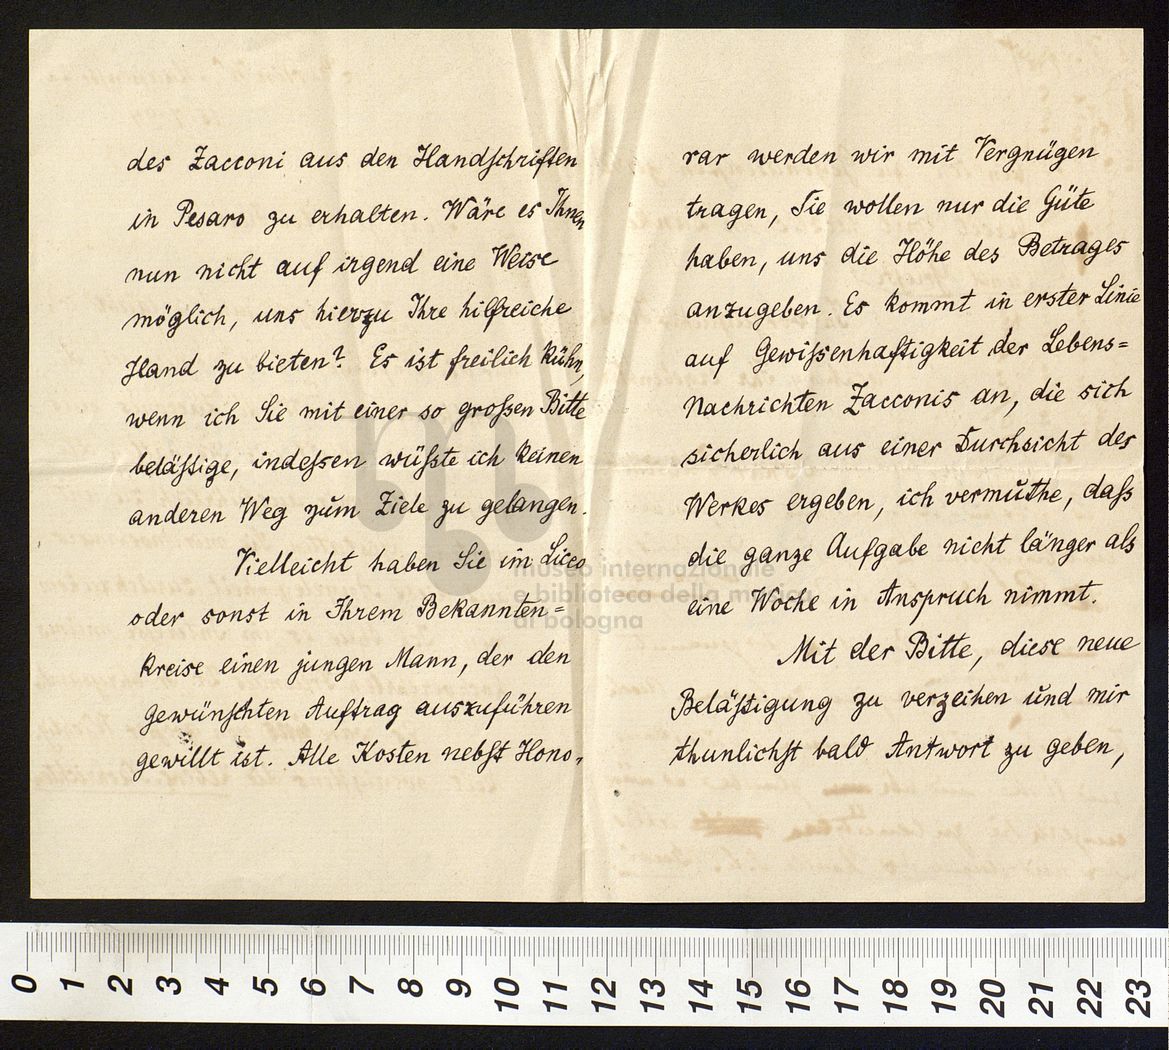 des Zacconi aus den Handschriften
in Pesaro zu erhalten. Wäre es Ihnen
nun nicht auf irgend eine Weise
möglich, uns hierzu Ihre hilfreiche
Hand zu bieten? Es ist freilich kühn,
wenn ich Sie mit einer so großen Bitte
belästige, indessen wüßte ich keinen
anderen Weg zum Ziele zu gelangen.
Vielleicht haben Sie im Liceo
oder sonst in Ihrem Bekannten=
kreise einen jungen Mann, der den
gewünschten Auftrag auszuführen
gewillt ist. Alle Kosten nebst Hono-
rar werden wir mit Vergnügen
tragen, Sie wollen nur die Güte
haben, uns die Höhe des Betrages
anzugeben. Es kommt in erster Linie
auf Gewissenhaftigkeit der Lebens=
Nachrichten Zacconis an, die sich
sicherlich aus einer Durchsicht des
Werkes ergeben, ich vermuthe, daß
die ganze Aufgabe nicht länger als
eine Woche in Anspruch nimmt.
Mit der Bitte, diese neue
Belästigung zu verzeihen und mir
thunlichst bald Antwort zu geben,
museo internazionale
e biblioteca della musica
di bologna
0 1 2 3 4 5 6 7 8 9 10 11 12 13 14 15 16 17 18 19 20 21 22 23